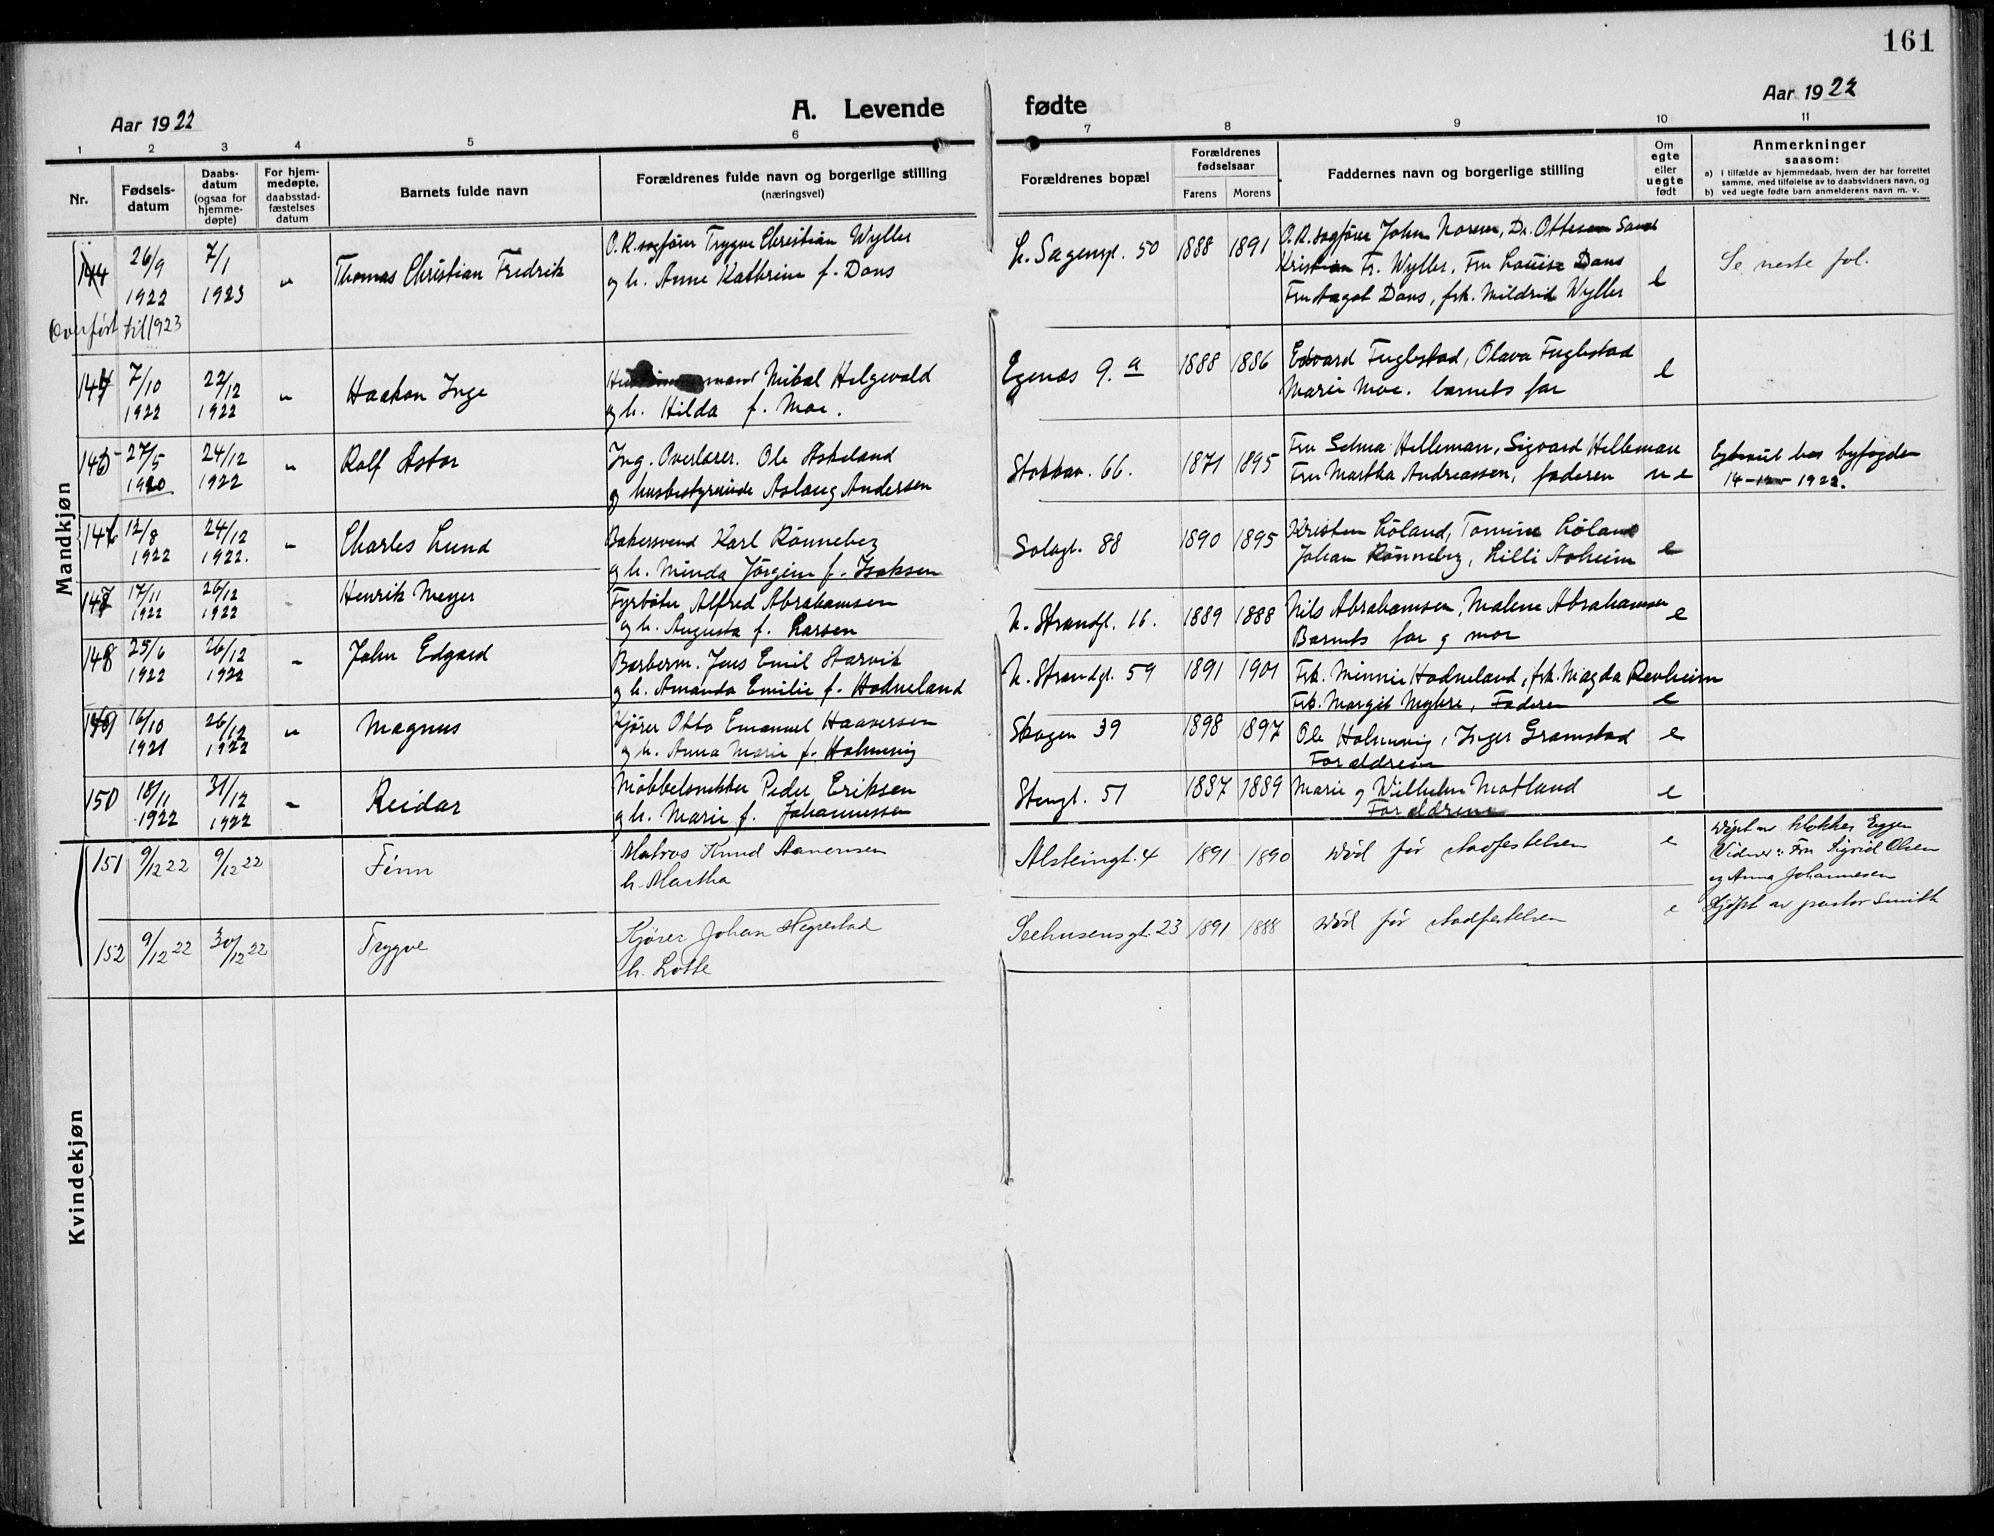 161
Aar 1922
A. Levende fødte
Aar 1922
1 2 3 4 5 6 7 8 9 10 11
Nr.
Fødsels-
datum
Daabs-
datum
(ogsaa for
hjemme-
døpte)
For hjem-
medøpte,
daabsstad-
fæstelses
datum
Barnets fulde navn
Forældrenes fulde navn og borgerlige stilling
(næringsvei)
Forældrenes bopæl
Forældrenes
fødselsaar
Farens Morens
Faddernes navn og borgerlige stilling
Om
egte
eller
uegte
født
Anmerkninger
saasom:
a) i tilfælde av hjemmedaab, hvem der har forrettet
samme, med tilføielse av to daabsvidners navn, og
b) ved uegte fødte barn anmelderens navn m. v.
Mandkjøn
144 26/9 1922 7/1 1923 " Thomas Christian Fredrik
O.R.sagfører Trygve Christian Wyller
og h. Anne Kathrine f. Dons
L. Sagengt. 50 1888 1891
O.R. sagfører John Norem, Dr. Ottesen
Kristian Fr. Wyller, Fru Louise Dons
Fru Aagot Dons, frk. Mildrid Wyller
e
Se neste fol.
Overført til 1923
144 7/10 1922 22/12 1922 " Haakon Inge
Mikal Helgevold
og h. Hilda f. Moe.
Egenæs 9. a 1888 1886
Edvard Fuglestad, Olava Fuglestad
Marie Moe. barnets far
e
145 27/5 1920 24/12 1922 " Rolf Astor
Ing. Overlærer. Ole Askeland
og husbestyrerinde Aslaug Andersen
Stokkav. 66. 1871 1895
Fru Selma Helleman, Sigvard Helleman
Fru Martha Andreassen, faderen
u e
hos byfogden
14-12-1922.
146 12/8 1922 24/12 1922. " Charles Lund
Bakersvend Karl Rønneberg
og h. Minda Jørgine f. Isaksen
Solagt. 88 1890 1895
Kristen Løland, Tomine Løland
Johan Rønneberg, Lilli Aaheim
e
147 17/11 1922 26/12 1922 " Henrik Meyer
Fyrbøter Alfred Abrahamsen
og h. Augusta f. Larsen
N. Strandgt. 16. 1889 1888
Nils Abrahamsen, Malene Abrahamsen
Barnets far og mor
e
148 25/6 1922 26/12 1922 " John Edgard
Barberm. Jens Emil Starvik
og h. Amanda Emilie f. Hodneland
N. Strandgt. 59 1891 1901
Frk. Minnie Hodneland, frk. Magda Revheim
Frk. Margit Myhre, Faderen
e
149 16/10 1921 26/12 1922 " Magnus
Kjører Otto Emanuel Haaversen
og h. Anna Marie f. Holmevig
Skagen 39 1898 1897
Ole Holmevig, Inger Gramstad
Forældrene
e
150 18/11 1922 31/12 1922 " Reidar
Møbbelsnekker Peder Eriksen
og h. Marie f. Johannessen
Stengt. 51 1887 1889
Marie og Wilhelm Motland
Forældrene
e
151 9/12 22 9/12 22 Finn
Matros Knud Aanensen
h. Martha
Alsteingt. 4 1891 1890
død før stadfestelsen
e
Døpt av klokker Eggen
Vidner: Fru Sigrid Olsen
og Anna Johannesen
152 9/12 22 30/12 22 Trygve
Kjører Johan Hegrestad
h. Lotte
Seehusensgt. 23 1891 1888
død før stadfestelsen
e
Hjdøpt av pastor Smith
Kvindekjøn